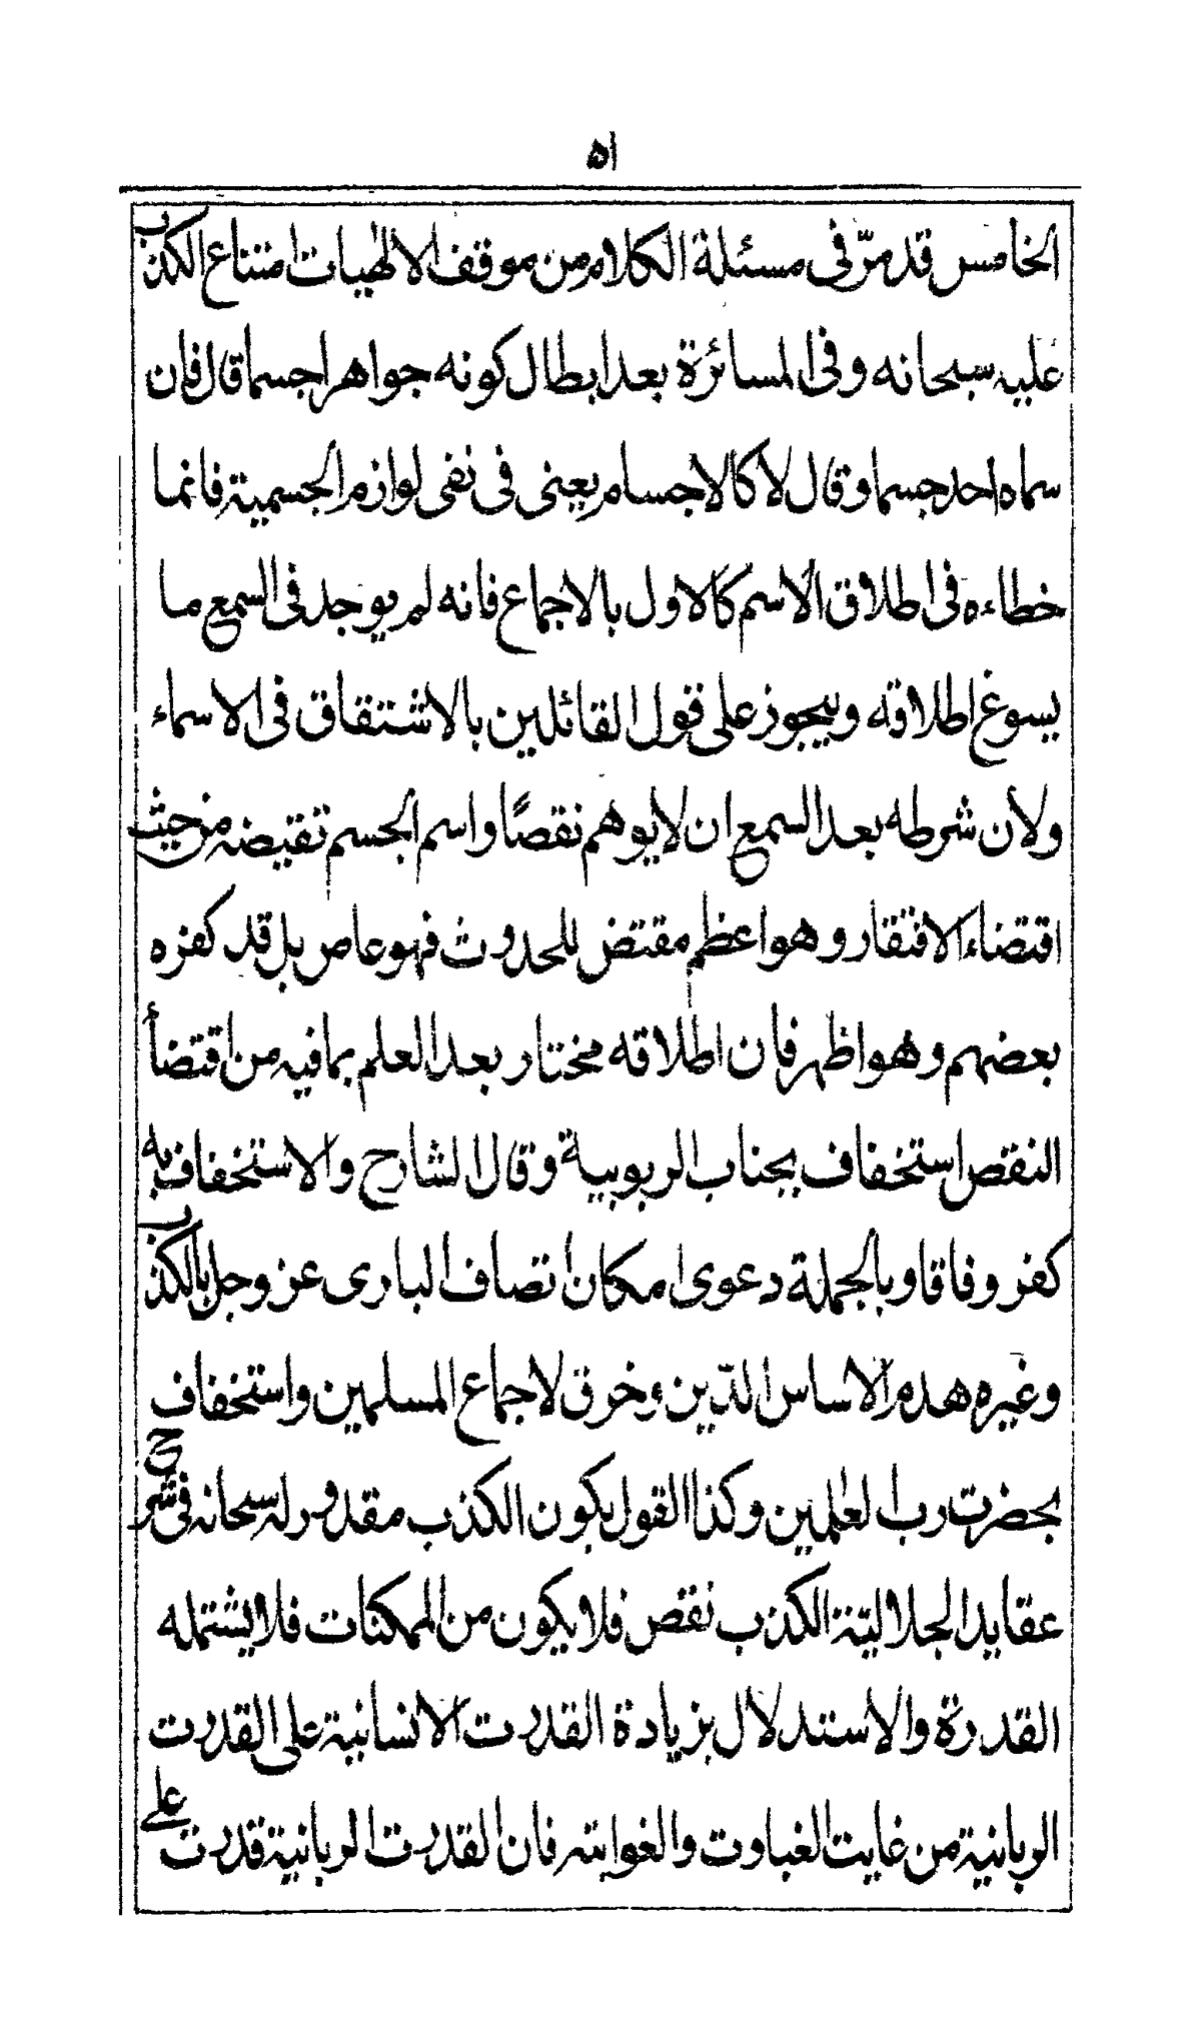 ٥١
الخامس قد مرّ فی مسئلة الکلام من موقف الالٰهیات امتناع الکذب
علیه سبحانه وفی المسائرة بعد ابطال کونه جواهر اجسما قال فان
سماه احد جسما وقال لا کالاجسام یعنی فی نفی لوازم الجسمیة فانما
خطاءه فی اطلاق الاسم کالاول بالاجماع فانه لم یوجد فی السمع ما
یسوغ اطلاقه ویجوز علی قول القائلین بالاشتقاق فی الاسماء
ولان شرطه بعد السمع ان لا یوهم نقصًا واسم الجسم تقیضه من حیث
اقتضاء الافتقار وهو اعظم مقتض للحدوث فهو عاص بل قد کفره
بعضهم وهو اظهر فان اطلاقه مختار بعد العلم بما فیه من اقتضأ
النقص استخفاف بجناب الربوبیة وقال الشارح والاستخفاف به
کفر وفاقا وبالجملة دعوی امکان اتصاف الباری عز وجل بالکذب
وغیره هدم الاساس الدّین وخرق لاجماع المسلمین واستخفاف
بحضرت رب العٰلمین وکذا القول بکون الکذب مقدور له سبحانه فی شرح
عقاید الجلالیّة الکذب نقص فلا یکون من الممکنات فلا یشتمله
القدرة والاستدلال بزیادة القدرت الانسانیة علی القدرت
الربانیة من غایت الغباوت والغوایة فان القدرت الربانیة قدرت علے